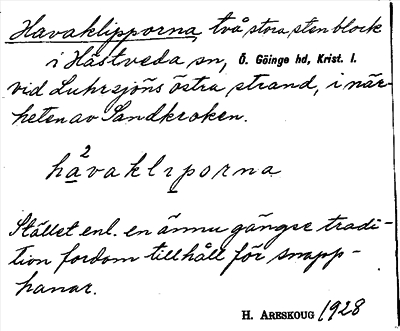 Havaklipporna, två stora stenblock
i Hästveda sn, Ö. Göinge hd, Krist. l.
vid Luhrsjöns östra strand, i när-
heten av Sandkroken.
ha²vaklıporna
Stället enl. en ännu gängse tradi-
tion fordom tillhåll för snapp-
hanar.
H. ARESKOUG 1928